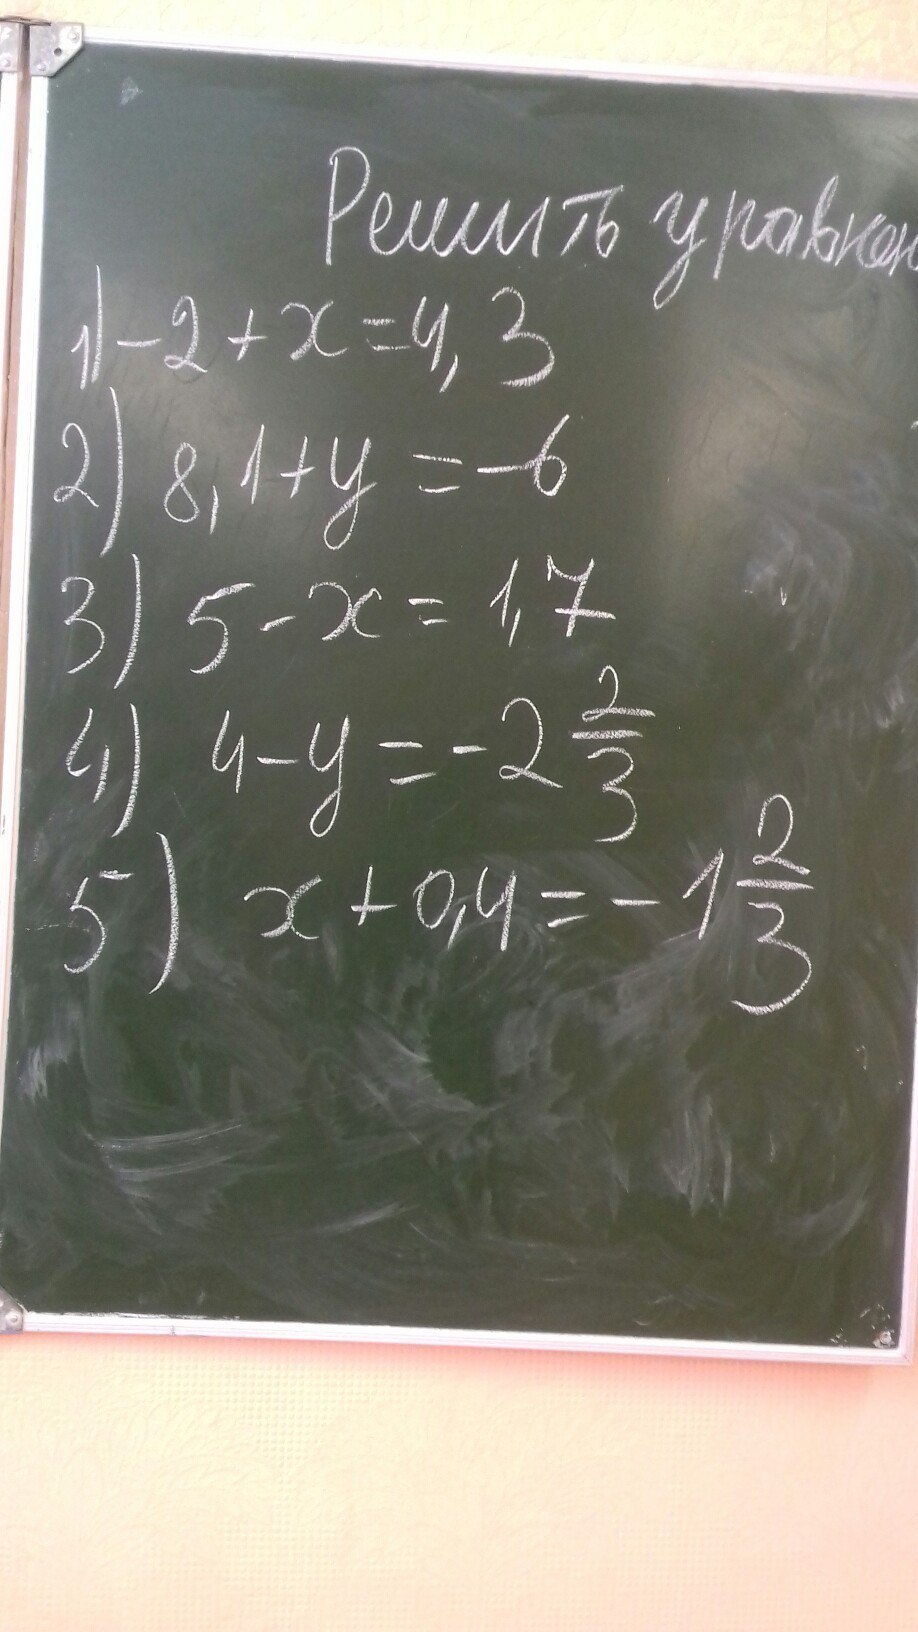 Решить уравнен
1) -2 + x = 4,3
2) 8,1 + y = -6
3) 5 - x = 1,7
4) 4 - y = -2 2/3
5) x + 0,4 = -1 2/3